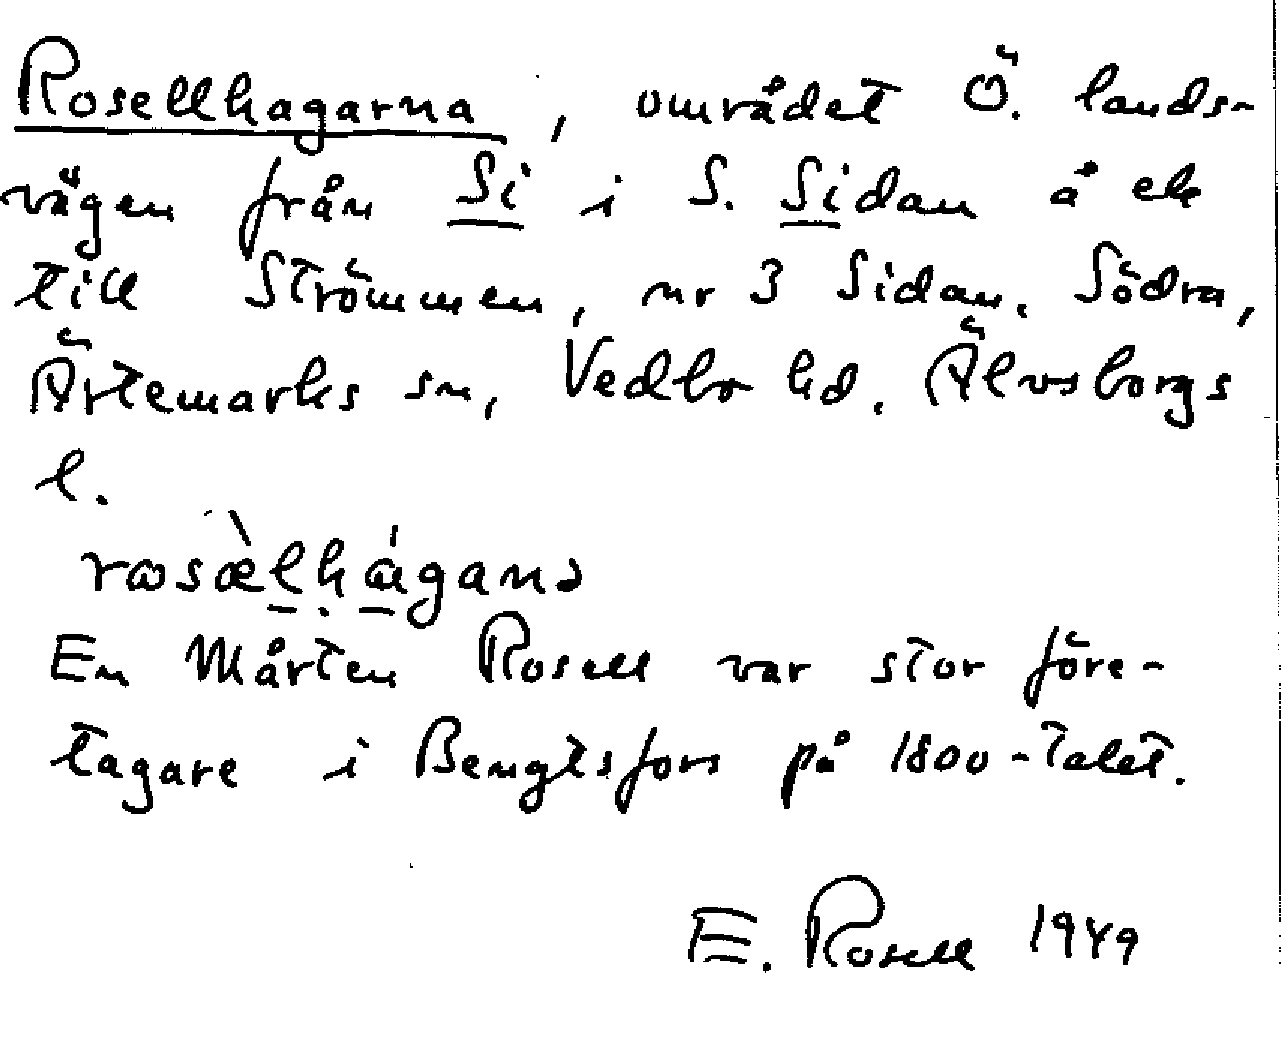 Rosellhagarna, området Ö. lands-
vägen från Si i S. Sidan å ek
till Strömmen, nr 3 Sidan, Södra,
Ärtemarks sn, Vedbo hd. Älvsborgs
l.
En Mårten Rosell var stor före-
tagare i Bengtsfors på 1800-talet.
E. Rosell 1949